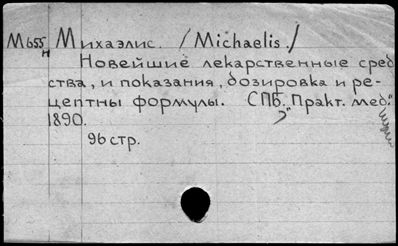 М655 Михаэлис. /Michaelis./
н
Новейшие лекарственные сред
ства, и показания, дозировка и ре-
цептны формулы. СПб. "Практ. мед."
1890.
96 стр.